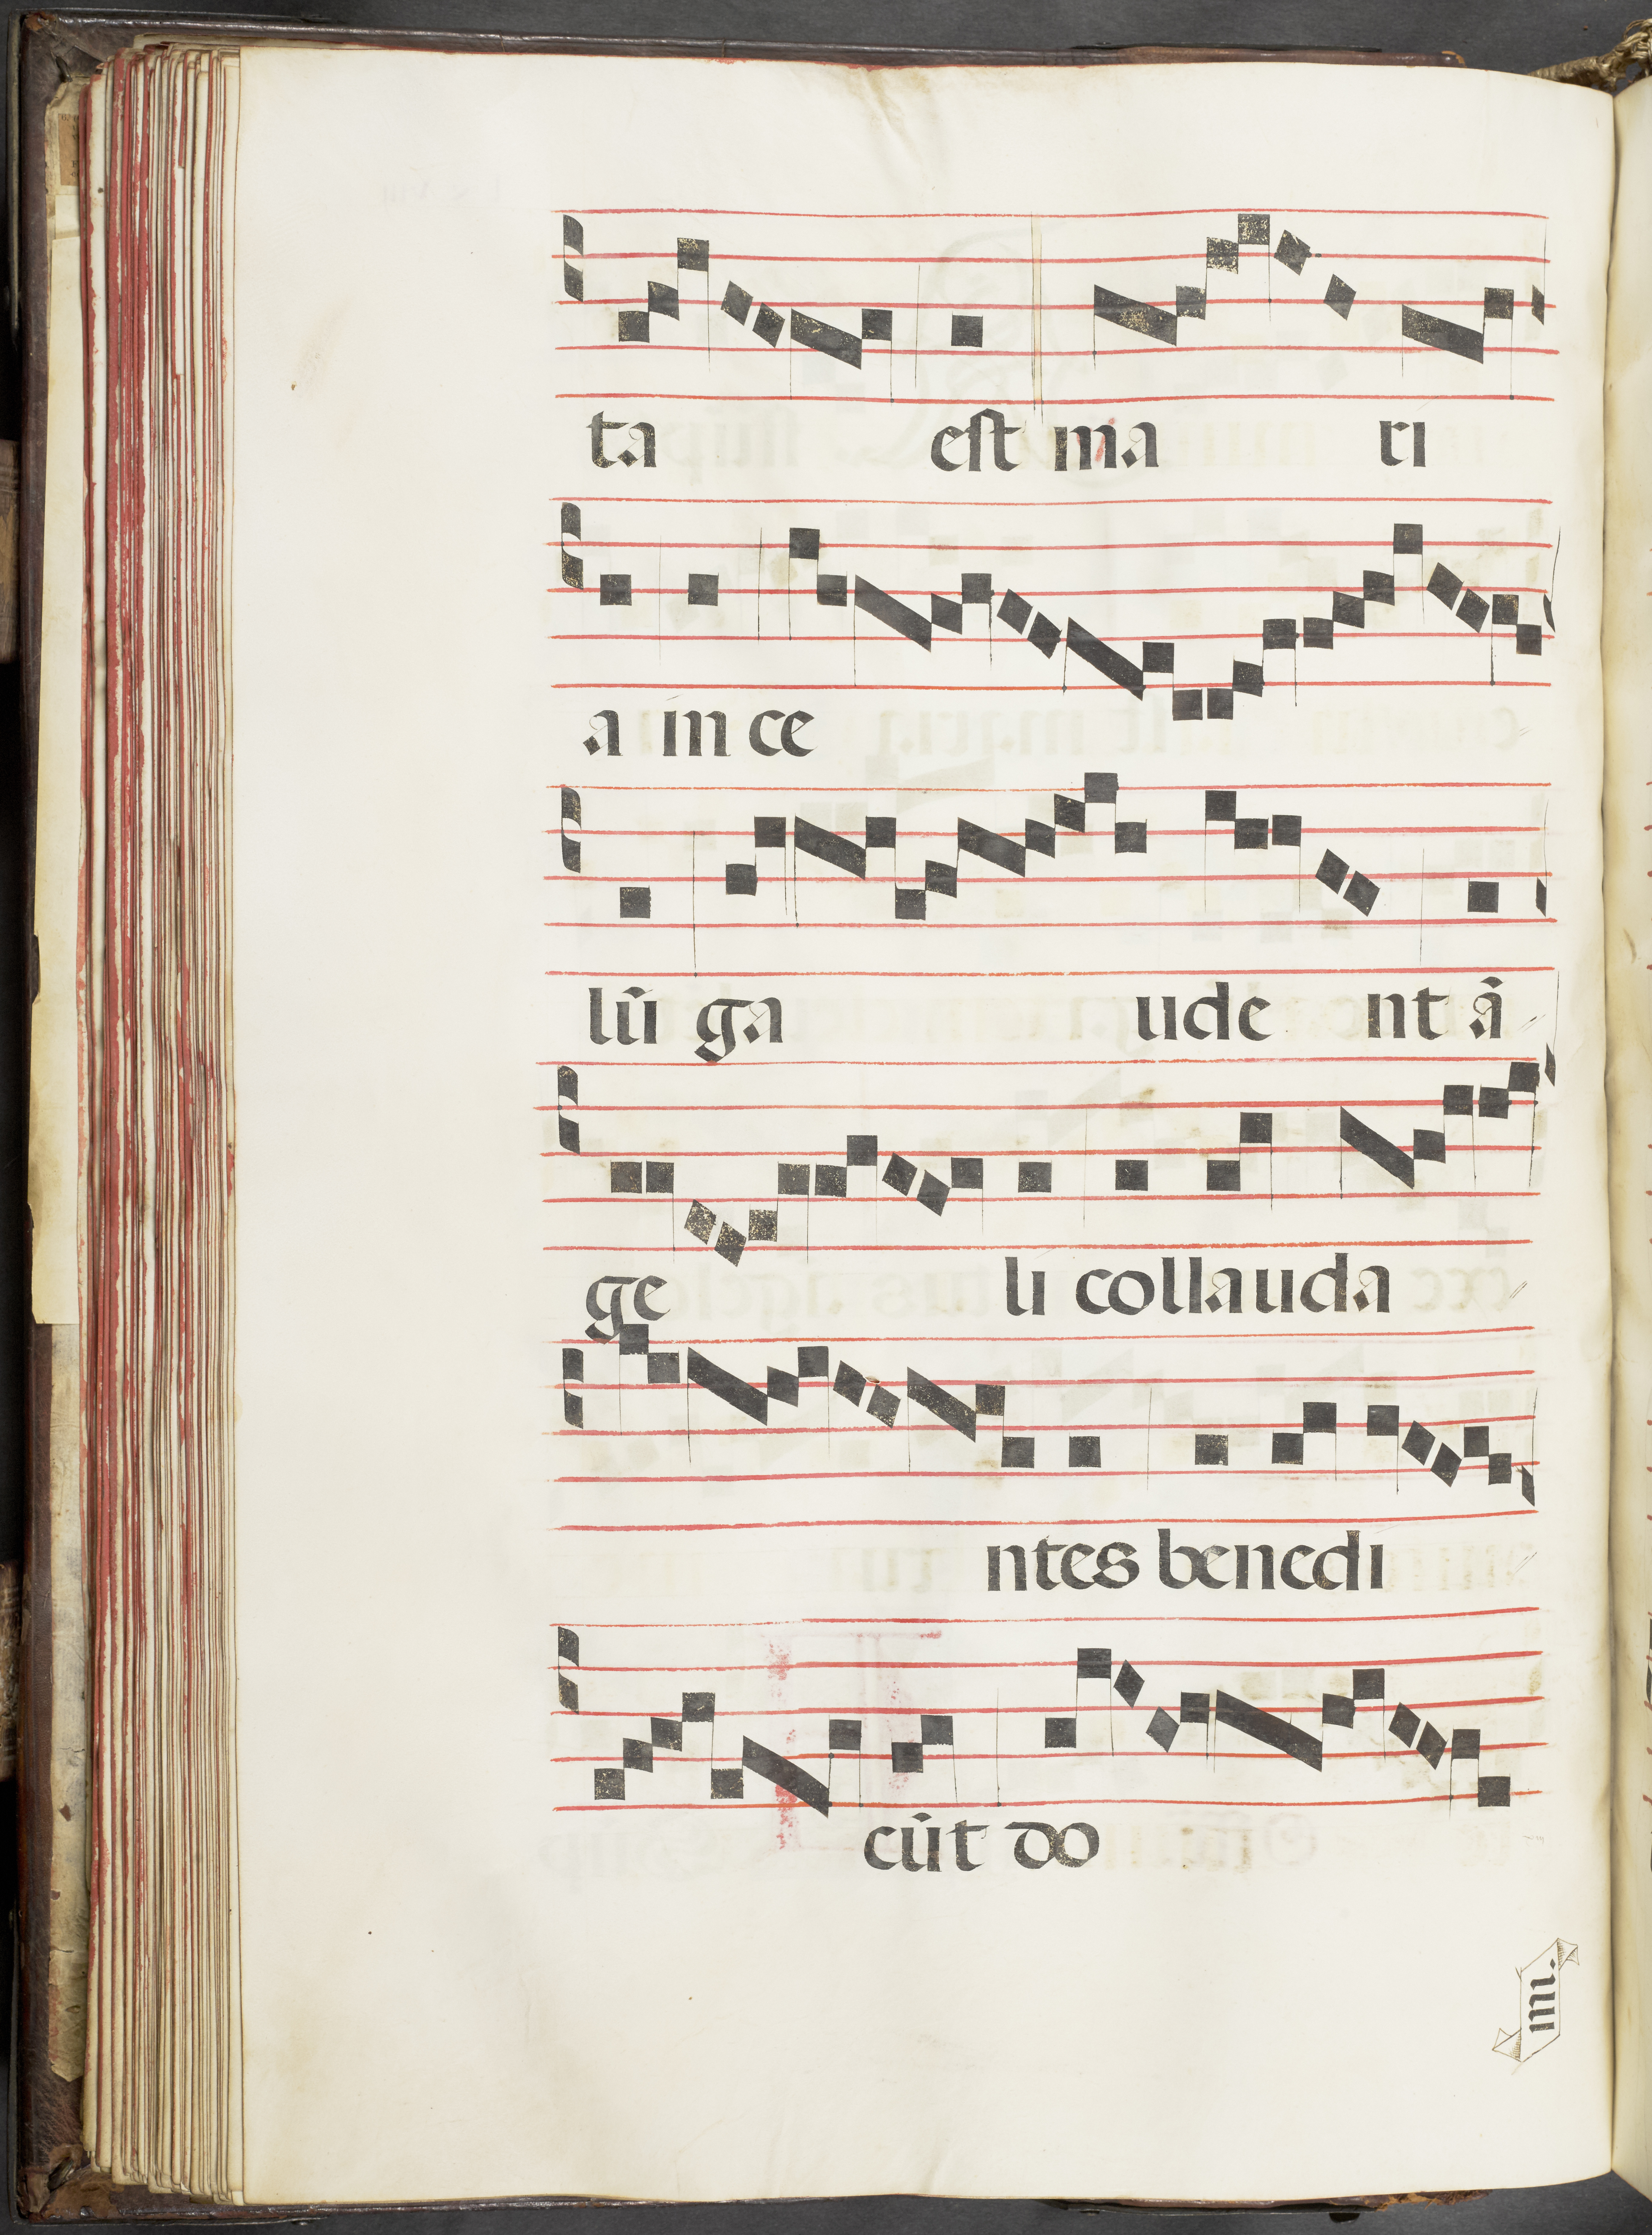 ta est ma ri
a in ce
lū ga ude nt ā
ge li collauda
ntes benedi
cūt do
mi.